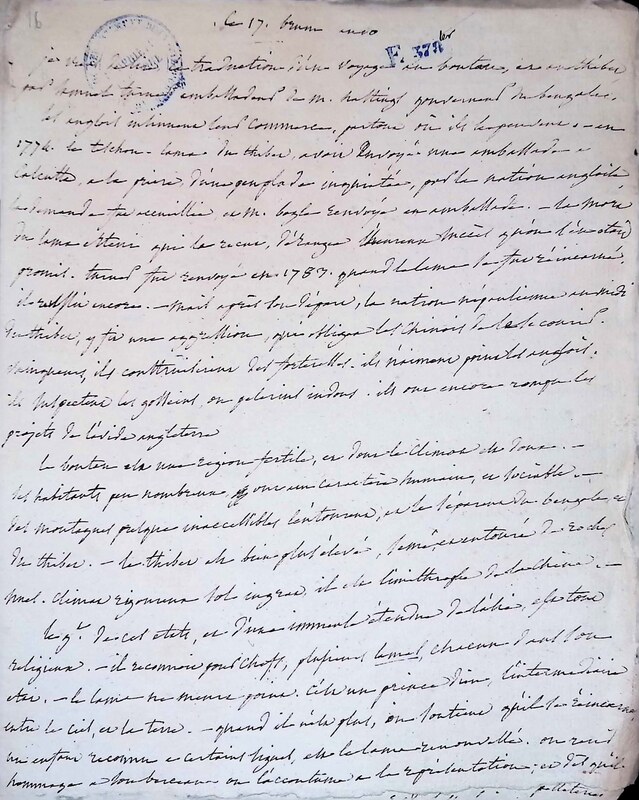 16
le 17. brum an 10
F 378 ter
je viens de lire la traduction d'un voyage au boutan, et au thibet
par Samuel turner ambassadeur de m. hastings gouverneur du bengale.
les anglois intriment leur commerce, partout où ils le peuvent. - en
1774. le tschou-lama du thibet, avoit envoyé une ambassade à
Calcutta, a la priere d'une peuplade inquiétée, par la nation angloise
la demande fut accueillie et m. bogle renvoyé en ambassade. - la mort
du lama éteint qui la recue, dérangea l'heureux succès qu'on s'étoit
promis. turner fut renvoyé en 1783. quand le lama se fut réincarné,
il réussit encore. - mais après son départ, la nation népaulienne au midi
du thibet, y fit une aggression, qui obligea les Chinois de le secourir.
vainqueurs, ils construisirent des forteresses. ils n'aiment point les anglois.
ils suspectent les gosseins, ou pelerins indous. ils ont encore rompu les
projets de l'avide angleterre
Le boutan est une region fertile, et dont le climat est doux. -
les habitants peu nombreux ont un caractère humain, et sociable. -
des montagnes presque inaccessibles l'entourent, et le séparent du bengale et
du thibet. - le thibet est bien plus élevé, semé et entouré de roches
nues. climat rigoureux sol ingrat, il est limitrophe de la chine. -
le gt. de ces etats, et d'une immense étendue de l'asie, est tout
religieux. - il reconnoit pour chefs, plusieurs lamas, chacun dans son
etat. - le lama ne meurt point. C'est un prince dieu, l'intermediaire
entre le ciel, et la terre. - quand il n'est plus, on soutient qu'il se réincarne
un enfant reconnu a certains signes, est le lama renouvellé. on rend
hommage a son berceau on l'accoutume a la représentation; et dès qu'il